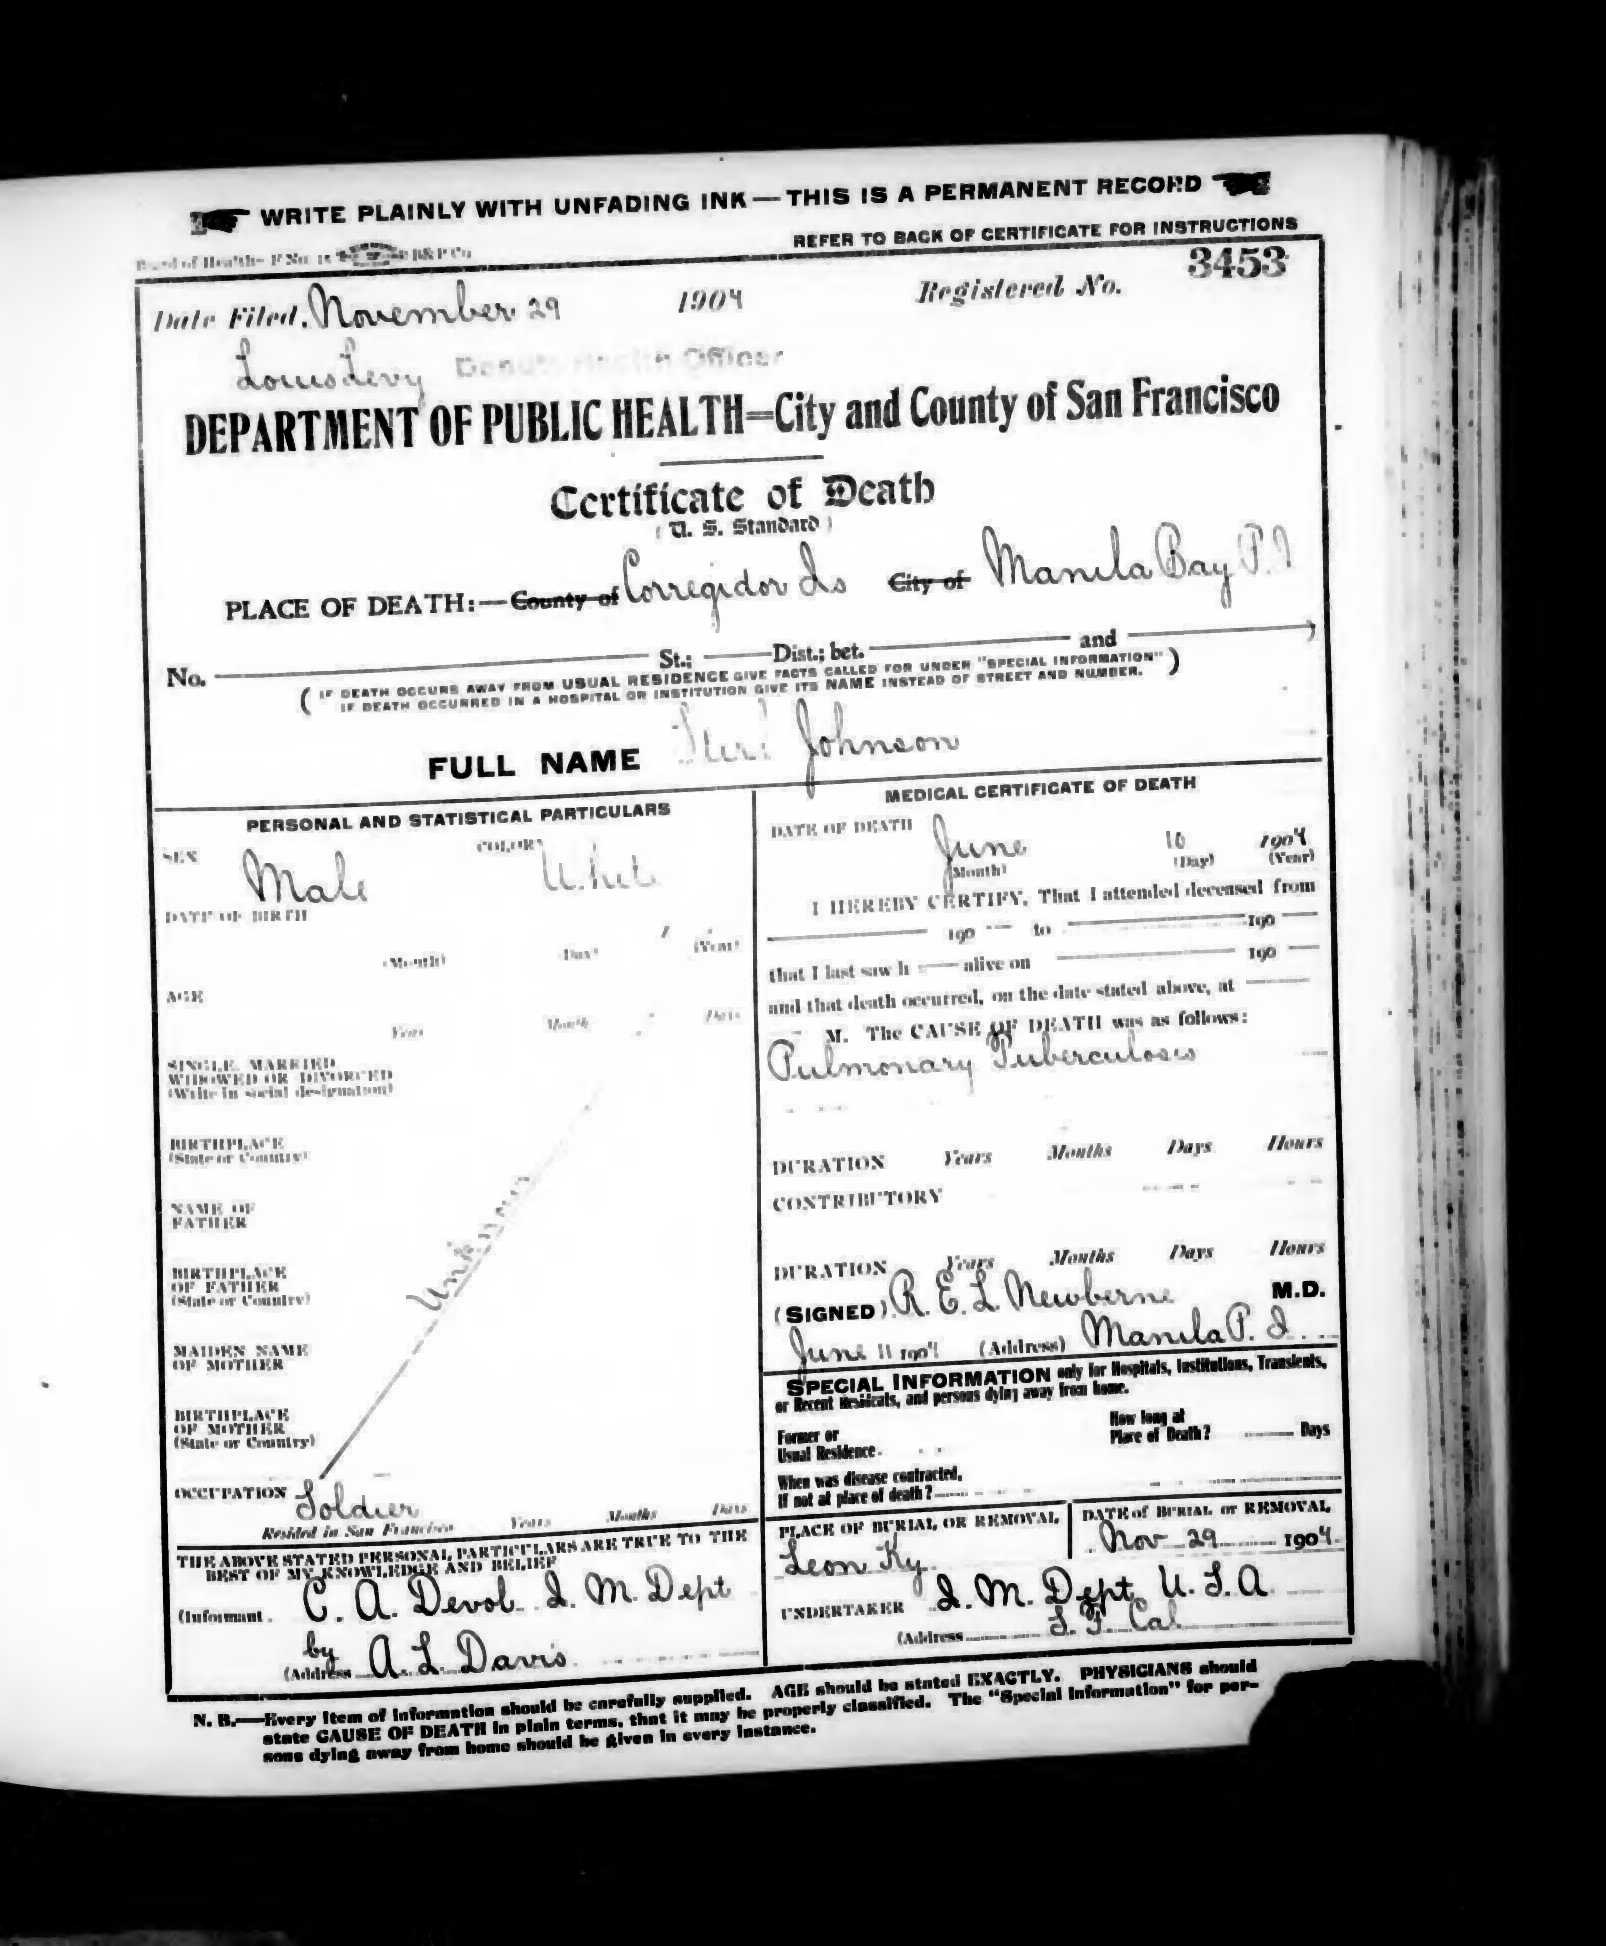 WRITE PLAINLY WITH UNFADING INK—THIS IS A PERMANENT RECORD
REFER TO BACK OF CERTIFICATE FOR INSTRUCTIONS
Board of Health—F No. 15 B&P Co
Date Filed, November 29 1904 Registered No. 3453
Louis Levy Deputy Health Officer
DEPARTMENT OF PUBLIC HEALTH=City and County of San Francisco
Certificate of Death
(U. S. Standard)
PLACE OF DEATH:—County of Corregidor Is City of Manila Bay P. I
No. St.; Dist.; bet. and
(IF DEATH OCCURS AWAY FROM USUAL RESIDENCE GIVE FACTS CALLED FOR UNDER "SPECIAL INFORMATION"
IF DEATH OCCURRED IN A HOSPITAL OR INSTITUTION GIVE ITS NAME INSTEAD OF STREET AND NUMBER.)
FULL NAME Johnson
PERSONAL AND STATISTICAL PARTICULARS
SEX Male COLOR White
DATE OF BIRTH
(Month) (Day) (Year)
AGE
Years Months Days
SINGLE, MARRIED
WIDOWED OR DIVORCED
(Write in social designation)
BIRTHPLACE
(State or Country)
NAME OF
FATHER
Unknown
BIRTHPLACE
OF FATHER
(State or Country)
MAIDEN NAME
OF MOTHER
BIRTHPLACE
OF MOTHER
(State or Country)
OCCUPATION Soldier
Resided in San Francisco Years Months Days
THE ABOVE STATED PERSONAL PARTICULARS ARE TRUE TO THE
BEST OF MY KNOWLEDGE AND BELIEF
(Informant C. A. Devol Q. M. Dept
by
(Address A. L. Davis
MEDICAL CERTIFICATE OF DEATH
DATE OF DEATH
June 10 1904
(Month) (Day) (Year)
I HEREBY CERTIFY, That I attended deceased from
190 to 190
that I last saw h alive on 190
and that death occurred, on the date stated above, at
M. The CAUSE OF DEATH was as follows:
Pulmonary Tuberculosis
DURATION Years Months Days Hours
CONTRIBUTORY
DURATION Years Months Days Hours
(SIGNED) R. E. L. Newberne M.D.
June 11 1904 (Address) Manila P. I.
SPECIAL INFORMATION only for Hospitals, Institutions, Transients,
or Recent Residents, and persons dying away from home.
Former or
Usual Residence
How long at
Place of Death? Days
When was disease contracted,
if not at place of death?
PLACE OF BURIAL OR REMOVAL DATE of BURIAL or REMOVAL
Leon Ky. Nov 29 1904
UNDERTAKER Q. M. Dept. U. S. A
(Address S. F. Cal
N. B.—Every item of information should be carefully supplied. AGE should be stated EXACTLY. PHYSICIANS should
state CAUSE OF DEATH in plain terms, that it may be properly classified. The "Special Information" for per-
sons dying away from home should be given in every instance.